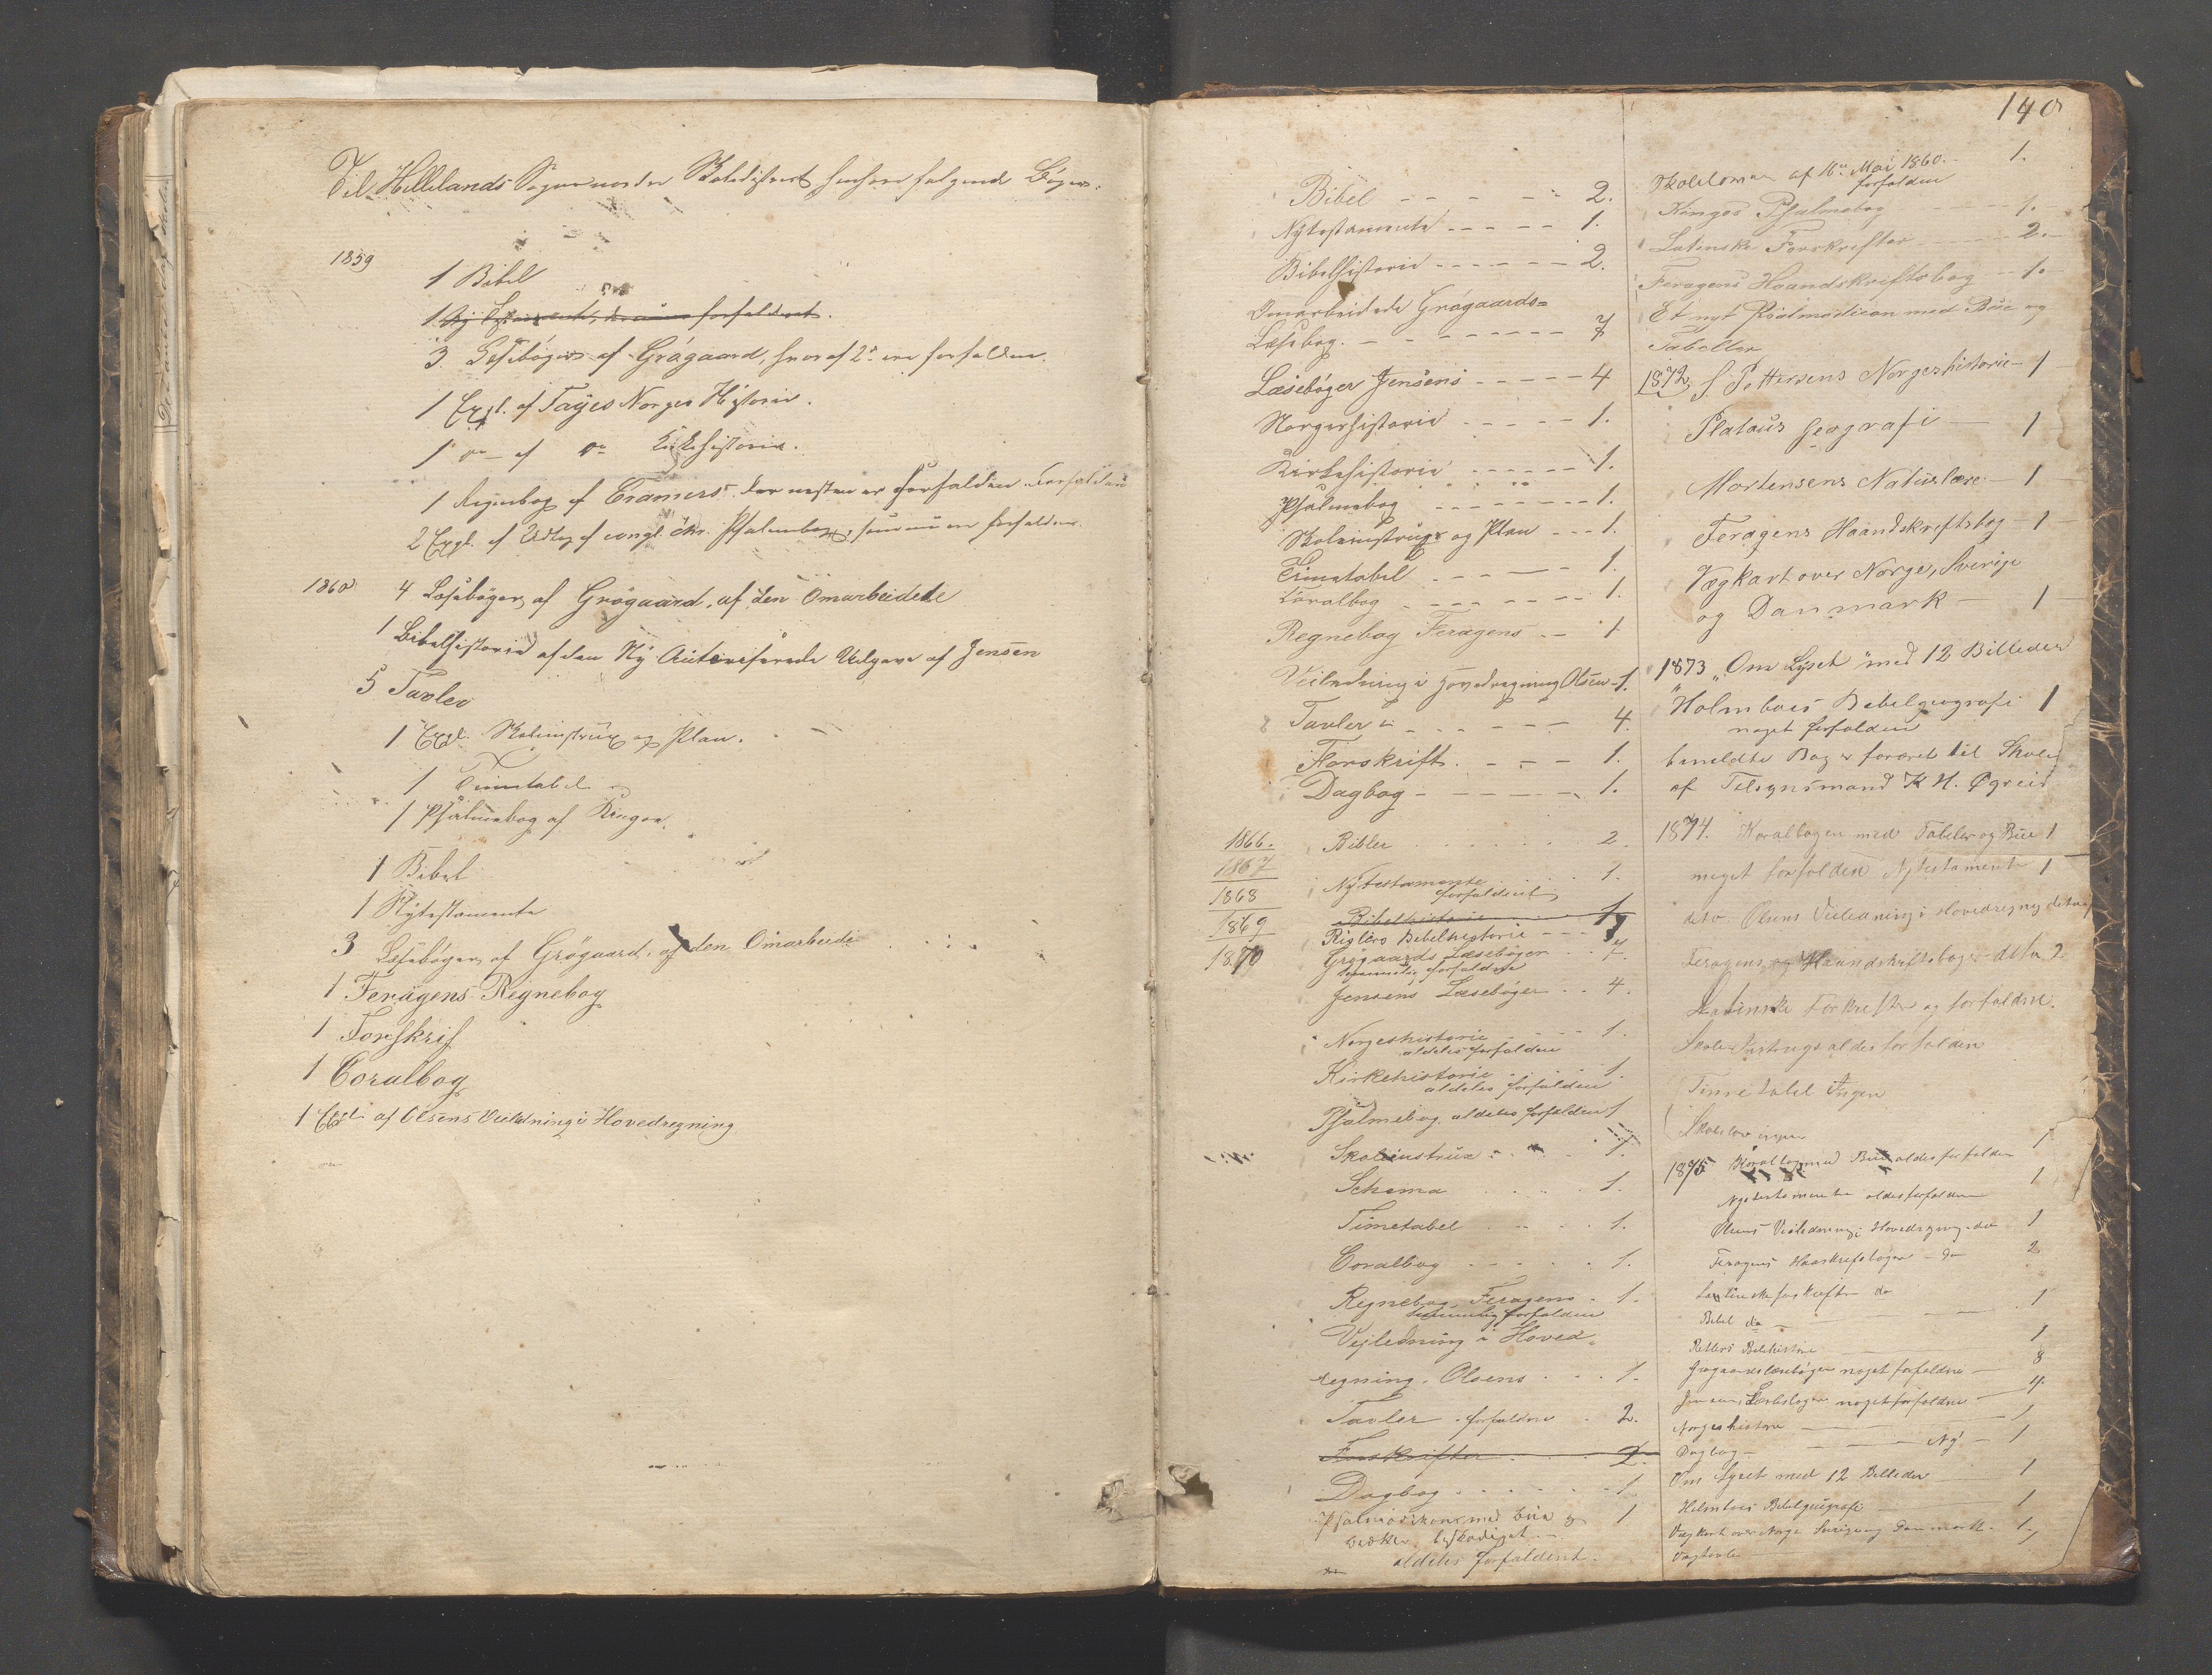 Til Hellelands Sogns nordre Skoledistrict henhøre følgende Bøger:
1859
1 Bibel
1 Ny Testamente, der er forfaldent.
3. Læsebøger af Grøgaard, hvoraf 2de ere forfaldne.
1 Expl. af Fayes Norges Historie.
1 do af do Kirkehistorie.
1 Regnebog af Cramers, der næsten er forfalden. Forfalden
2 Expl. af Udtog af evangl. chr. Psalmebog, som nu ere forfaldne.
1860 4 Læsebøger af Grøgaard, af den Omarbeidede
1 Bibelhistorie af den Ny Autoriserede Udgave af Jensen
5 Tavler
1 Expl. Skoleinstrux og Plan.
1 Timetabel
1 Psalmebog af Kingos.
1 Bibel
1 Nytestamente
3 Læsebøger af Grøgaard, af den Omarbeide
1 Feragens Regnebog
1 Forskrif
1 Coralbog
1 Expl af Olsens Veiledning i Hovedregning
Bibel 2.
Nytestamente 1.
Bibelhistorie 2.
Omarbeidede Grøgaards=
Læsebog. 7
Læsebøger Jensens 4
Norgeshistorie 1.
Kirkehistorie 1.
Psalmebog 1.
Skoleinstrux og Plan 1.
Timetabel 1.
Coralbog 1.
Regnebog Feragens 1
Veiledning i Hovedregning Olsen 1.
Tavler 4.
Forskrift 1.
Dagbog 1.
1866. Bibler 2.
1867
1868 Nytestamente 1.
forfaldent
1869 Bibelhistorie 1
Riglers Bibelhistorie
1870 Grøgaards Læsebøger 7.
forfaldne
Jensens Læsebøger 4.
Norgeshistorie 1.
aldeles forfalden
Kirkehistorie 1.
aldeles forfalden
Psalmebog aldeles forfalden 1
Skoleinstrux 1.
Schema 1.
Timetabel 1.
Coralbog 1.
Regnebog Feragens 1.
temmelig forfalden
Vejledning i Hoved=
regning. Olsens 1.
Tavler forfaldne 2.
Forskrifter 2.
Dagbog 1.
Psalmodikon med Bue og 1
beskadiget
aldeles forfaldent.
140
Skoleloven af 16de Mai 1860. 1.
forfalden
Kingos Psalmebog 1.
Latinske Forskrifter 2.
Feragens Haandskriftsbog 1.
Et nyt Psalmodicon med Bue og
Tabeller
1872 S. Pettersens Norgeshistorie 1
Plataus Geografi 1
Mortensens Naturlære 1
Feragens Haandskriftsbog 1
Vægkart over Norge, Sverige
og Danmark 1
1873 „Om Lyset" med 12 Billeder
" Holmboes Bibelgeografi 1
noget forfalden
bemeldte Bog er foræret til Skolen
af Tilsynsmand K H. Øgreid
1874. Koralbogen med Tabeler og Bue 1
meget forfalden Nytestamente 1
dito Olsens Veiledning i Hovedregning
Feragens Haandskriftsbøger ditto 2
Latinske Forskrifter og forfaldne.
Skole Instrugs aldes forfalden
Timetabel Ingen
Skolelov ingen
1875 Koralbog med Bue aldes forfalden 1
Nytestamente aldes forfalden 1
Olsens Veiledning i Hovedregning do 1
Feragens Haandskriftsbøger do 2
Latinske forskrifter do
Bibel do 1
Riglers Bibelhistorie 1
Grøgaards læsebøger noget forfaldne 8
Jensens Læsebøger noget forfaldne 4
Norgeshistorie 1
Dagbog Ny 1
Om Lyset med 12 Billeder 1
Holmboes Bibelgeografi 1
Vægkart over Norge Sverige og Danmark 1.
Vægtavle